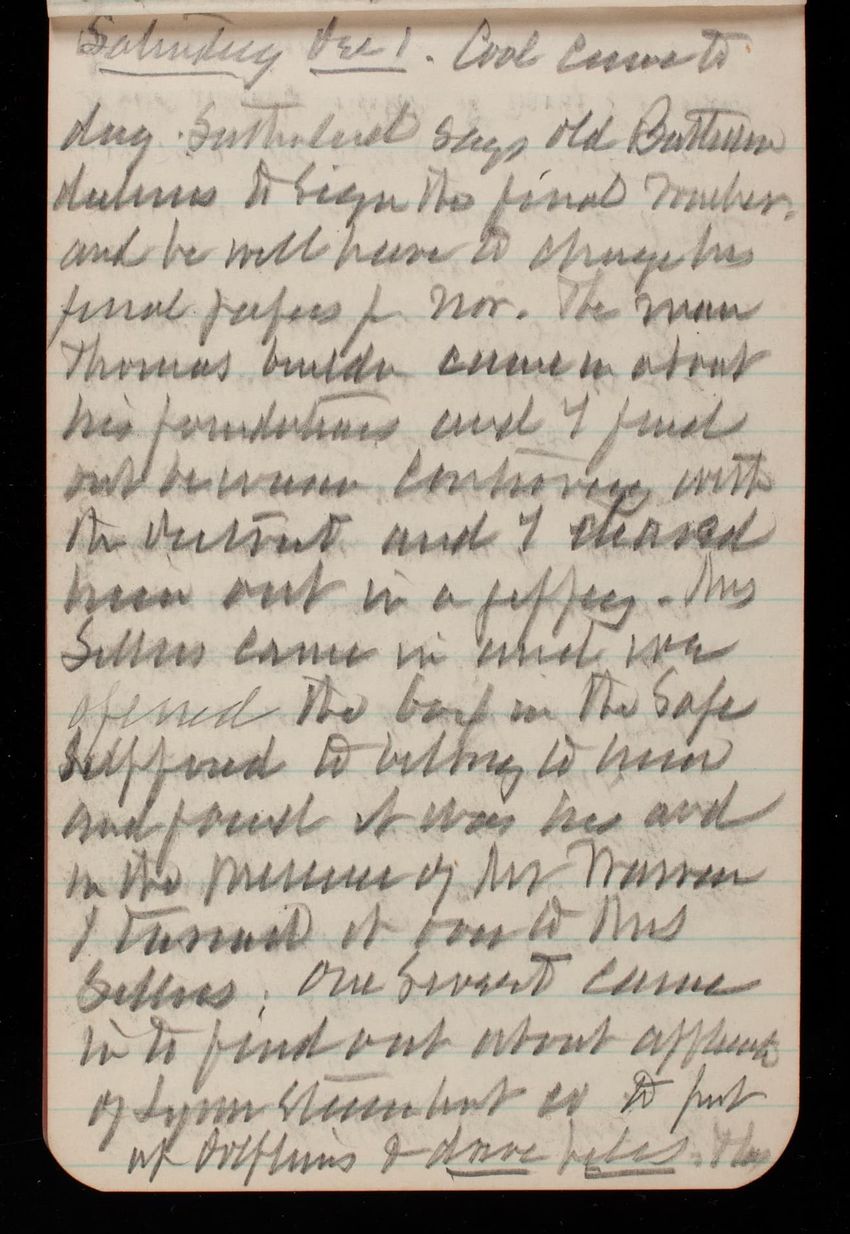 Saturday Dec 1. Cool
day. Sutherland says old
declines to sign the final voucher.
and he will have to change his
final papers for Nov. The man
Thomas builder came in about
his foundations and I find
out he was in controversy with
the District and I cleared
him out in a jiffey. Mrs
Sellers came in and we
opened the box in the Safe
supposed to belong to him
and found it was his and
in the presence of Mr Warren
I turned it over to Mrs
Sellers. One came
in to find out about
of Lynn Steamboat co to put
up Dolphins & drive piles. The